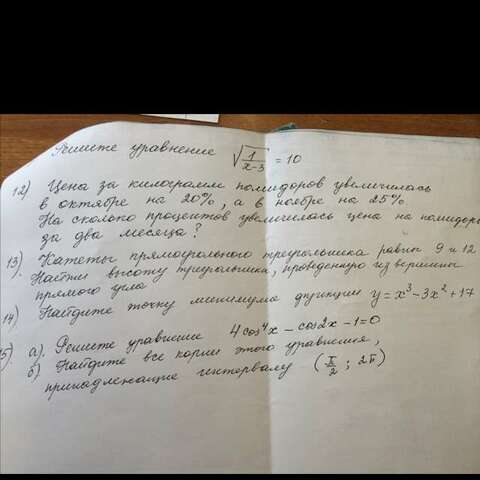 Решите уравнение √(1/(x-3)) = 10
12) Цена за килограмм помидоров увеличилась
в октябре на 20%, а в ноябре на 25%.
На сколько процентов увеличилась цена на помидоры
за два месяца?
13). Катеты прямоугольного треугольника равны 9 и 12
Найти высоту треугольника, проведенную из вершины
прямого угла
14) Найдите точку минимума функции y=x³-3x²+17
15). а). Решите уравнение 4cos⁴x - cos2x - 1=0
б). Найдите все корни этого уравнения,
принадлежащие интервалу (π/2; 2π)